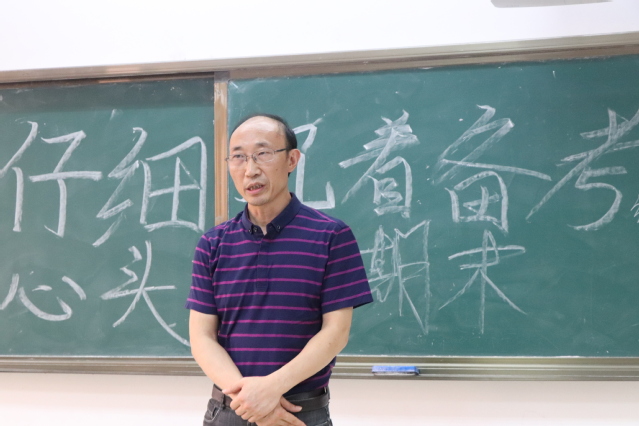 仔细着备考
心头期末